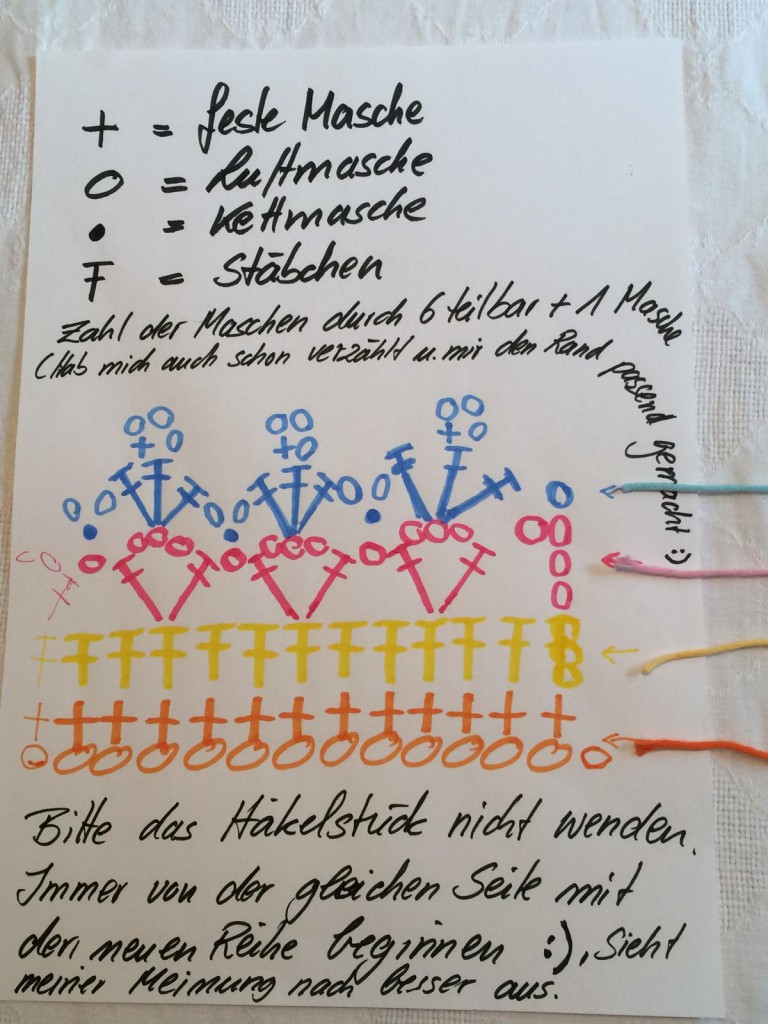 + = feste Masche
o = Luftmasche
• = Kettmasche
= Stäbchen
Zahl der Maschen durch 6 teilbar + 1 Masche
(Hab mich auch schon verzählt u. mir den Rand passend gemacht :)
Bitte das Häkelstück nicht wenden.
Immer von der gleichen Seite mit
der neuen Reihe beginnen :), Sieht
meiner Meinung nach besser aus.